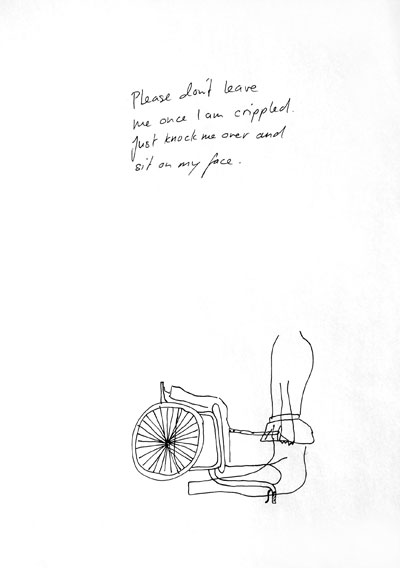 Please don't leave
me once I am crippled.
Just knock me over and
sit on my face.